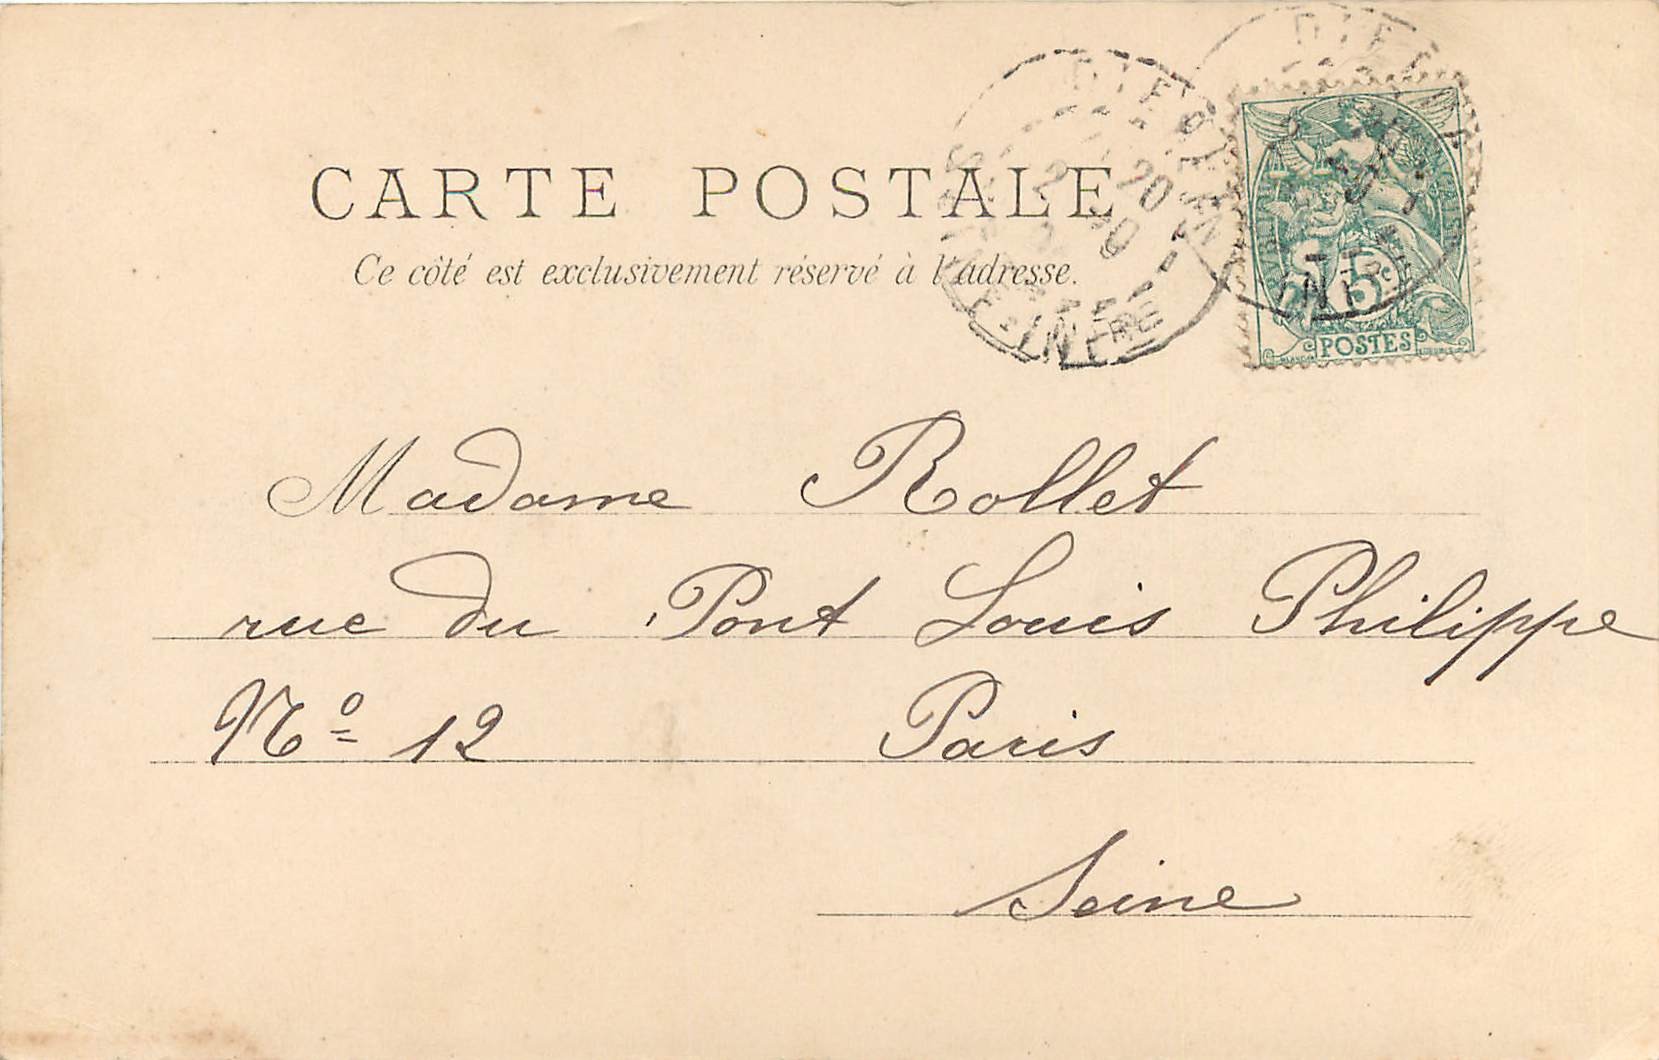 CARTE POSTALE
Ce côté est exclusivement réservé à l'adresse.
POSTES
Madame Rollet
rue du Pont Louis Philippe
Nº 12 Paris
Seine